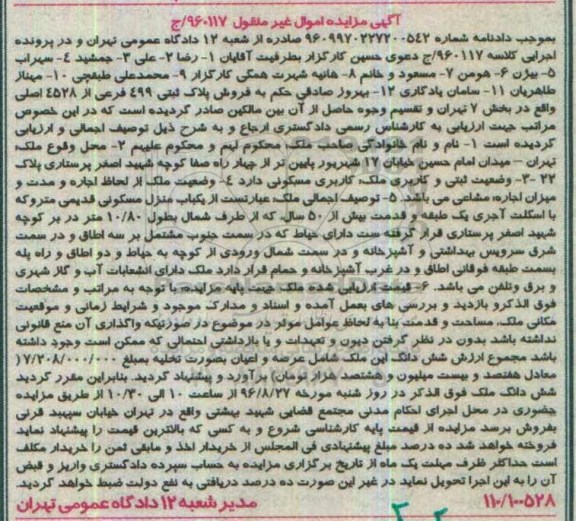 آگهی مزایده اموال غیر منقول ۹۶۰۱۱۷/ج
بموجب دادنامه شماره ۹۶۰۹۹۷۰۲۲۷۲۰۰۵۴۲ صادره از شعبه ۱۲ دادگاه عمومی تهران و در پرونده
اجرایی کلاسه ۹۶۰۱۱۷/ج دعوی حسین کارگزار بطرفیت آقایان ۱- رضا ۲- علی ۳- جمشید ۴- سهراب
۵- بیژن ۶- هومن ۷- مسعود و خانم ۸- هانیه شهرت همگی کارگزار ۹- محمدعلی طبقچی ۱۰- مهناز
طاهریان ۱۱- سامان یادگاری ۱۲- بهروز صادقی حکم به فروش پلاک ثبتی ۴۹۹ فرعی از ۴۵۲۸ اصلی
واقع در بخش ۷ تهران و تقسیم وجوه حاصل از آن بین مالکین صادر گردیده است که در این خصوص
مراتب جهت ارزیابی به کارشناس رسمی دادگستری ارجاع و به شرح ذیل توصیف اجمالی و ارزیابی
گردیده است ۱- نام و نام خانوادگی صاحب ملک: محکوم لهم و محکوم علیهم ۲- محل وقوع ملک:
تهران – میدان امام حسین خیابان ۱۷ شهریور پایین تر از چهار راه صفا کوچه شهید اصغر پرستاری پلاک
۲۲ ۳- وضعیت ثبتی و کاربری ملک: کاربری مسکونی دارد ۴- وضعیت ملک از لحاظ اجاره و مدت و
میزان اجاره: مشاعی می باشد. ۵- توصیف اجمالی ملک: عبارتست از یکباب منزل مسکونی قدیمی متروکه
با اسکلت آجری یک طبقه و قدمت بیش از ۵۰ سال که از طرف شمال بطول ۱۰/۸۰ متر در بر کوچه
شهید اصغر پرستاری قرار گرفته ست دارای حیاط که در سمت جنوب مشتمل بر سه اطاق و در سمت
شرق سرویس بهداشتی و آشپزخانه و در سمت شمال ورودی از کوچه به حیاط و دو اطاق و راه پله
بسمت طبقه فوقانی اطاق و در غرب آشپزخانه و حمام قرار دارد ملک دارای انشعابات آب و گاز شهری
و برق وتلفن می باشد. ۶- قیمت ارزیابی شده ملک جهت پایه مزایده: با توجه به مراتب و مشخصات
فوق الذکرو بازدید و بررسی های بعمل آمده و اسناد و مدارک موجود و شرایط زمانی و موقعیت
مکانی ملک، مساحت و قدمت بنا به لحاظ عوامل موثر در موضوع در صورتیکه واگذاری آن منع قانونی
نداشته باشد بدون در نظر گرفتن دیون و تعهدات و یا بازداشتی احتمالی که ممکن است وجود داشته
باشد مجموع ارزش شش دانگ این ملک شامل عرصه و اعیان بصورت تخلیه بمبلغ ۷/۲۰۸/۰۰۰/۰۰۰(
معادل هفتصد و بیست میلیون و هشتصد هزار تومان) برآورد و پیشنهاد گردید. بنابراین مقرر گردید
شش دانگ ملک فوق الذکر در روز شنبه مورخه ۹۶/۸/۲۷ از ساعت ۱۰ الی ۱۰/۳۰ از طریق مزایده
حضوری در محل اجرای احکام مدنی مجتمع قضایی شهید بهشتی واقع در تهران خیابان سپهبد قرنی
بفروش برسد مزایده از قیمت پایه کارشناسی شروع و به کسی که بالاترین قیمت را پیشنهاد نماید
فروخته خواهد شد ده درصد مبلغ پیشنهادی فی المجلس از خریدار اخذ و مابقی ثمن را خریدار مکلف
است حداکثر ظرف مهلت یک ماه از تاریخ برگزاری مزایده به حساب سپرده دادگستری واریز و قبض
آن را به این اجرا تحویل نماید در غیر این صورت ده درصد دریافتی به نفع دولت ضبط خواهد گردید.
۱۱۰/۱۰۰۵۲۸ مدیر شعبه ۱۲ دادگاه عمومی تهران